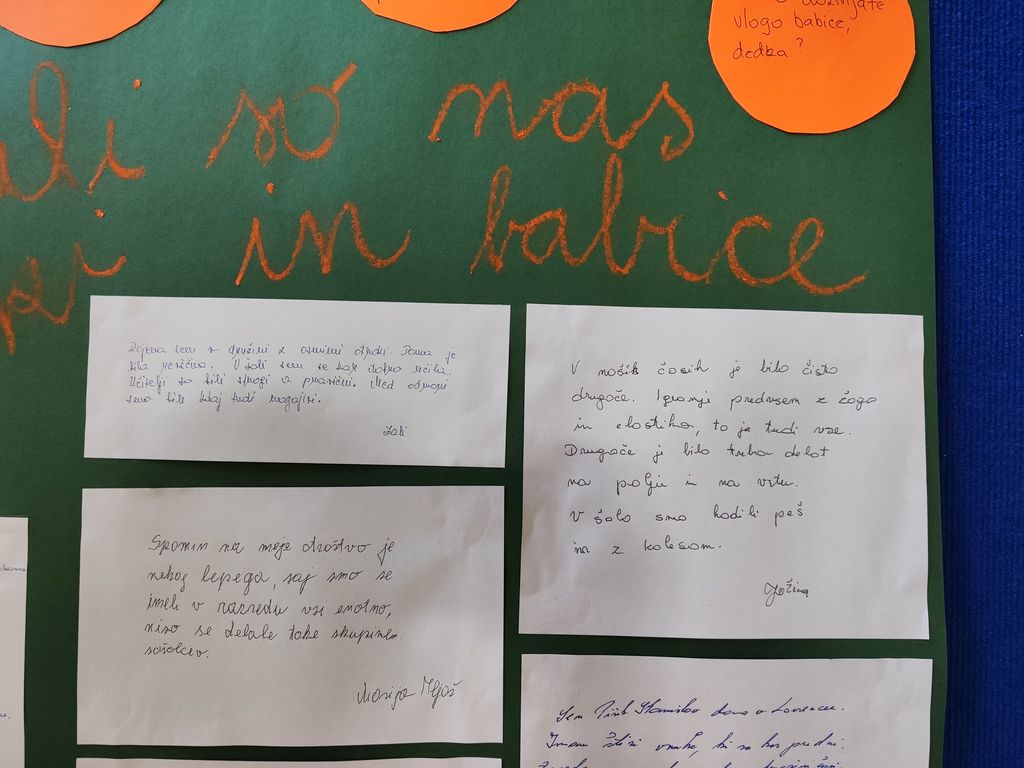 doživljate
vlogo babice,
dedka?
so nas
in babice
Rojena sem v družini z osmimi otroki. Doma je
bila revščina. V šoli sem se kar dobro učila.
Učitelji so bili strogi a pravični. Med odmori
smo bili kdaj tudi nagajivi.
Zali
V naših časih je bilo čisto
drugače. Igranje predvsem z žogo
in elastiko, to je tudi vse.
Drugače je bilo treba delat
na polju in na vrtu.
V šolo smo hodili peš
in z kolesom.
Jožica
Spomin na moje otroštvo je
nekaj lepega, saj smo se
imeli v razredu vsi enotno,
niso se delale take skupine
sošolcev.
Marija
Sem Stanislav doma v Lovrencu.
Imam štiri vnuke, ki so kar pridni.